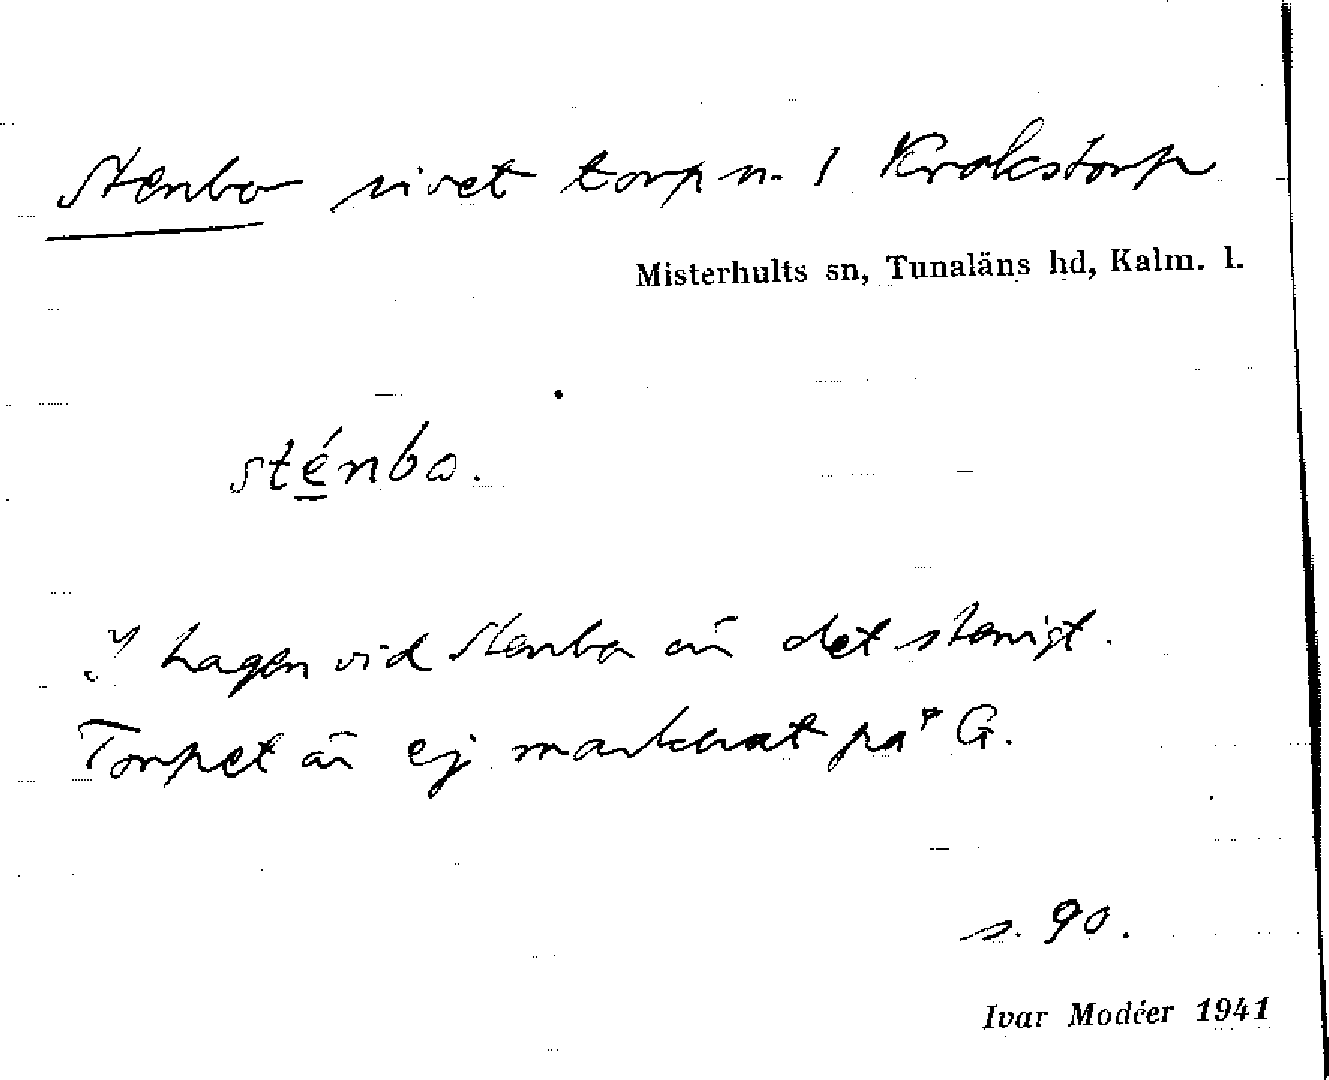 Stenbo rivet torp n. 1 Krokstorp
Misterhults sn, Tunaläns hd, Kalm. l.
sténbo.
I hagen vid Stenbo är det stenigt.
Torpet är ej markerat på G.
s. 90.
Ivar Modéer 1941